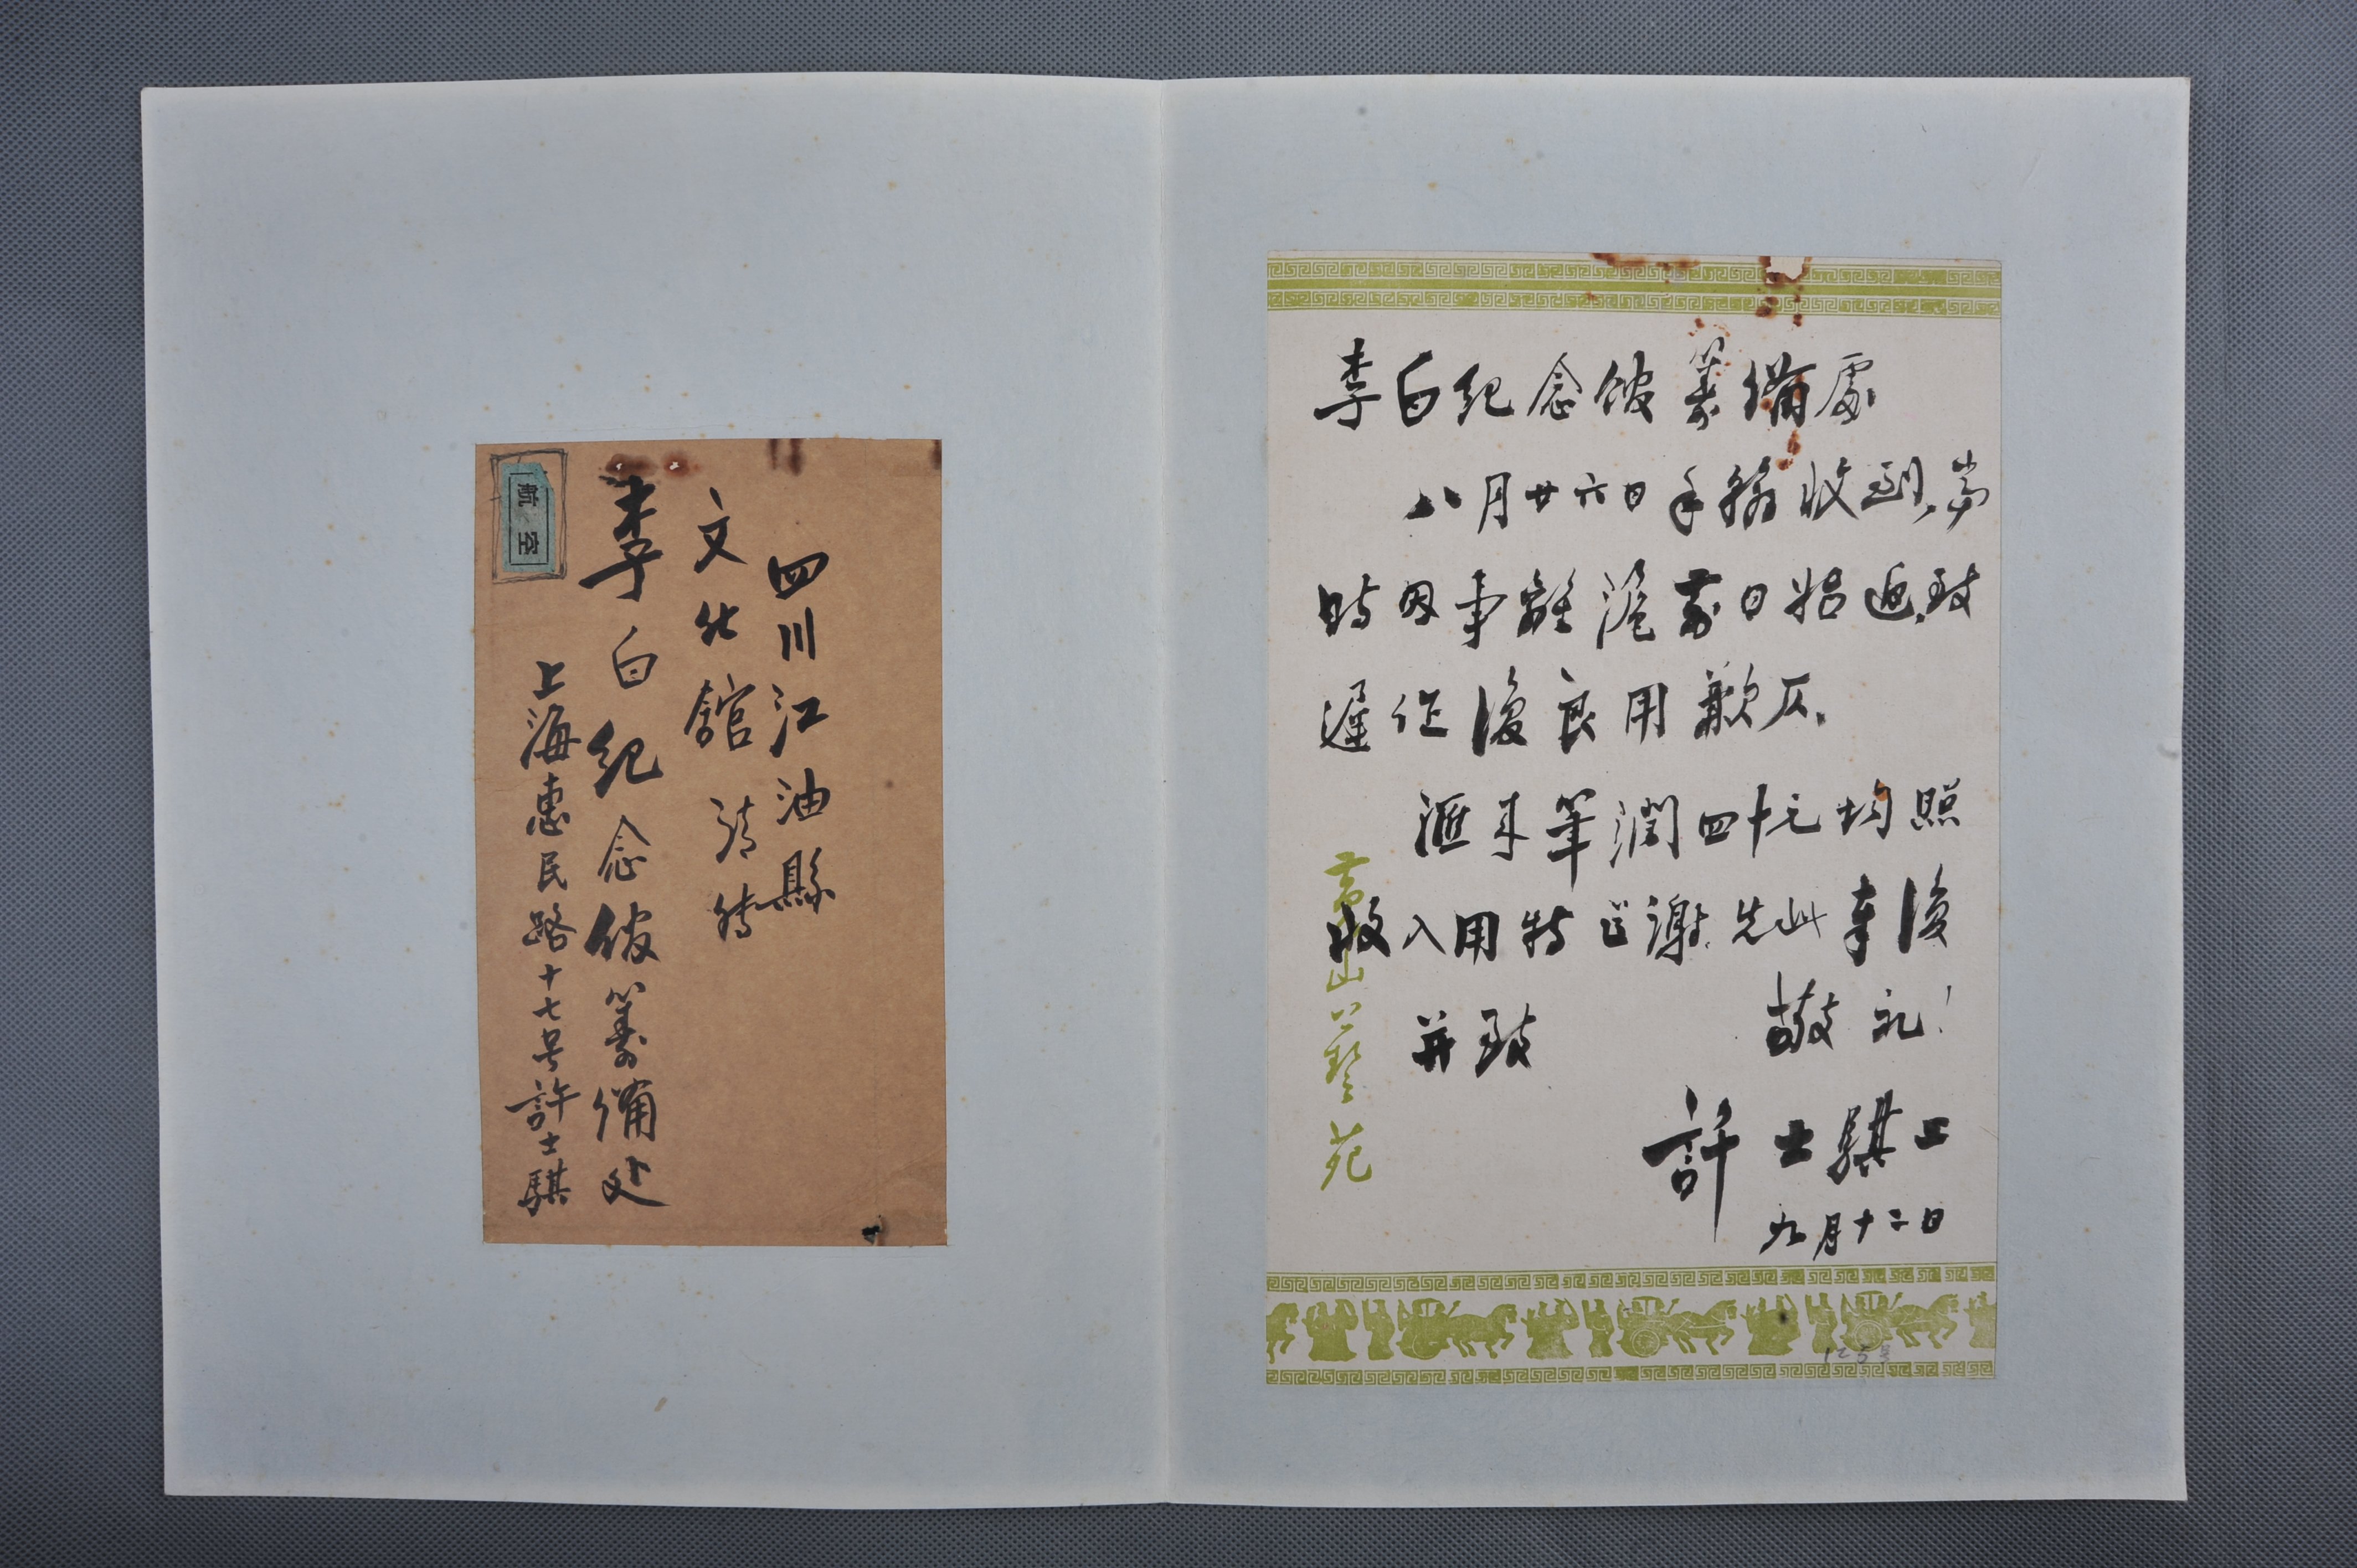 四川江油縣
文化館 請轉
李白紀念館籌備处
上海惠民路十七号許士騏
航空
李白紀念館籌備處
八月廿六日手翰收到,當
時因事離滬前日始返,致
遲作復良用歉仄.
滙来筆潤四十元均照
收入用特志謝.先此奉復
并致
敬礼!
許士騏上
九月十二日
黄山藝苑
125号